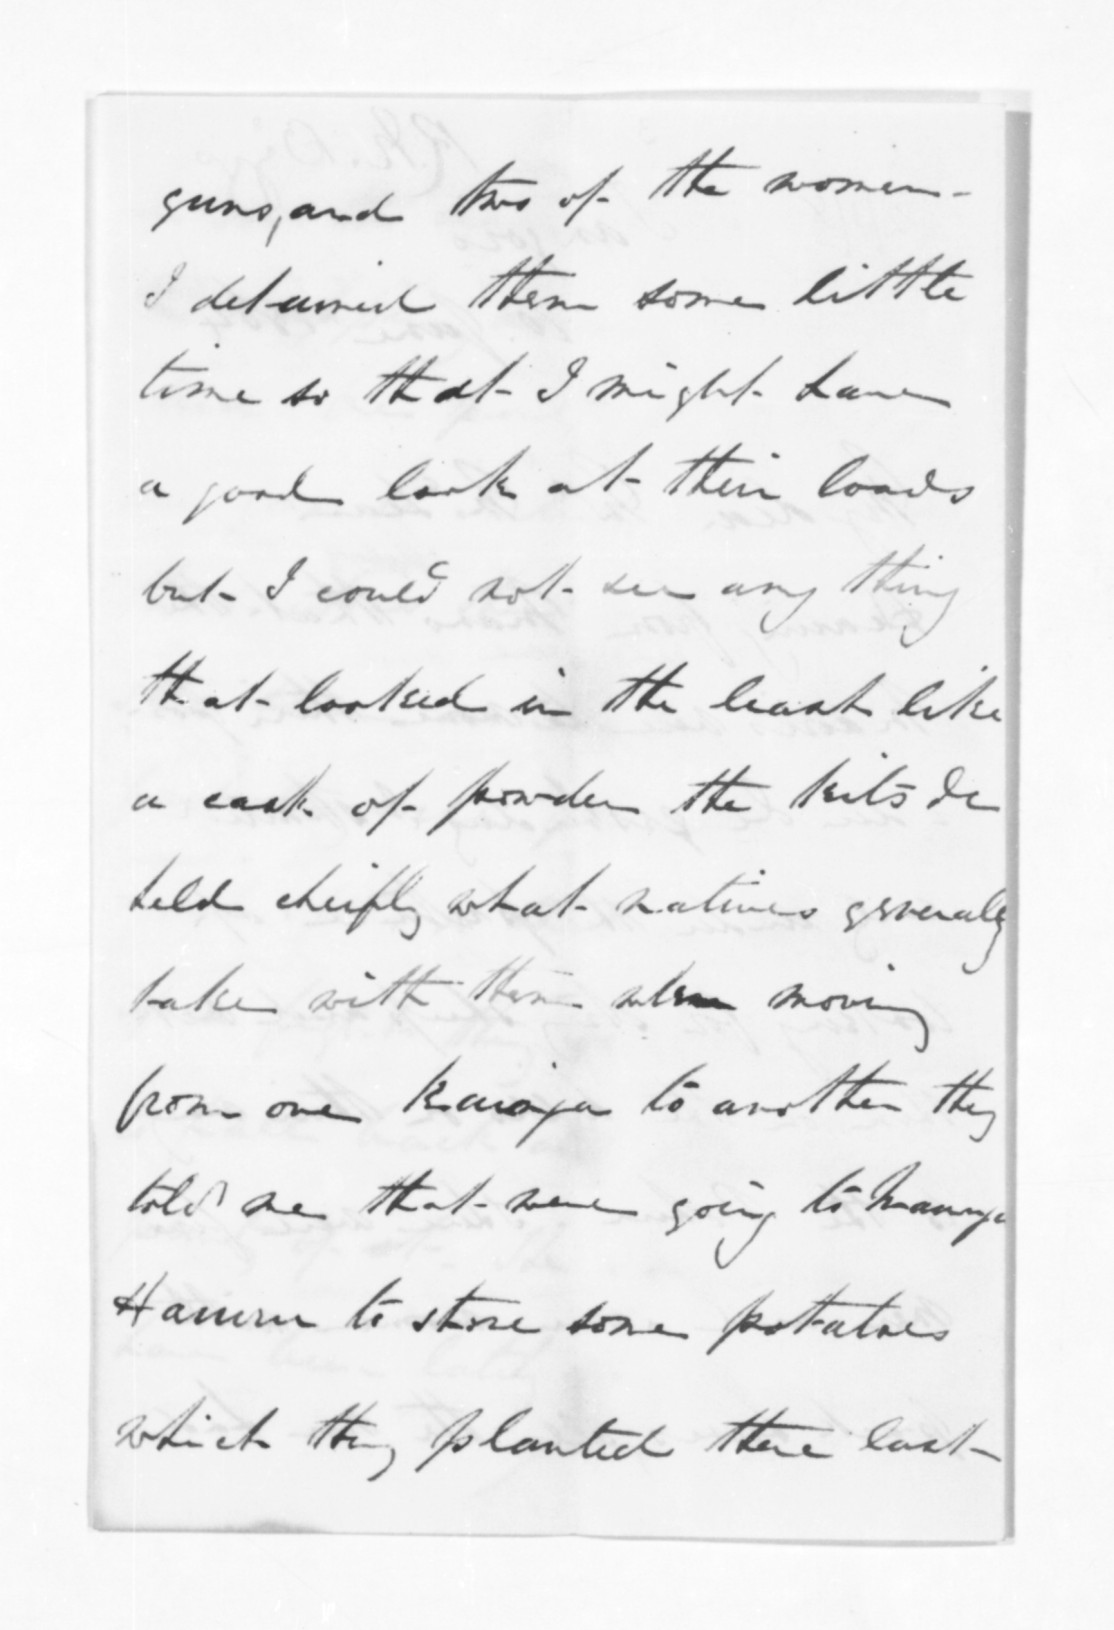 guns, and two of the women -
I detained them some little
time so that I might have
a good look at their loads
but I could not see any thing
that looked in the least like
a cask of powder the kits &c
held cheifly what natives generally
take with them when moving
from one kainga to another they
told me that were going to
to store some potatoes
which they planted there last